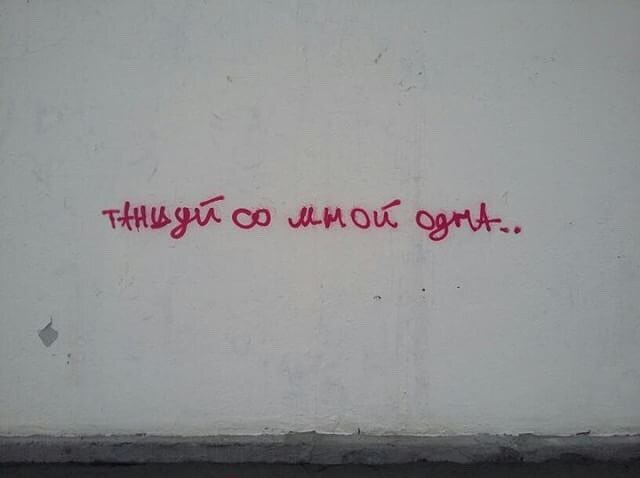 танцуй со мной одна..